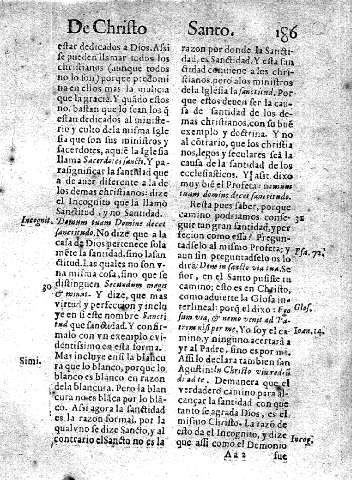 De Christo Santo. 186
estar dedicados a Dios. Assi
se pueden llamar todos los
christianos (aunque todos
no lo son) porque predomi
na en ellos mas la malicia
que la gracia. Y quãto estos
no, bastan que lo sean los q̃
estan dedicados al ministe-
rio y culto dela misma Igle
sia que son sus ministros y
sacerdotes, aquiẽ la Iglesia
llama Sacerdotes sancti. Y pa-
ra significar la santidad que
a de auer diferente a la de
los demas christianos: dize
el Incognito que la llamò
Sanctitud, y no Santidad.
Incognit. Domum tuam Domine decet
sanctitudo. No dize que a la
casa de Dios pertenece sola
mẽte la santidad, sino la san
ctitud. Las quales no son v-
na misma cosa, sino que se
30 distinguen Secundum magis
& minus. Y dize, que mas
virtud y perfeccion incluye
en si este nombre Sancti
tud que sanctidad. Y confir-
malo con vn exemplo evi-
dentissimo en esta forma.
Simi. Mas incluye en si la blancu
ra que lo blanco, porque lo
blanco es blanco en razon
dela blancura. Pero la blan
cura no es blãca por lo blã-
co. Assi agora la sanctidad
es la razon formal, por la
qual vno se dize Sancto, y al
contrario el Sãcto no es la
razon por donde la Sancti-
dad, es Sanctidad. Y esta san
ctidad conuiene a los chri-
stianos, pero a los ministros
dela Iglesia la sanctitud. Por
que estos deuen ser la cau-
sa de santidad de los de-
mas christianos, con su buẽ
exemplo y doctrina. Y no
al cõtrario, que los christia
nos, legos y seculares seã la
causa de la santidad de los
ecclesiasticos. Y assi dixo
muy biẽ el Profeta: domum
tuam domine decet sanctitudo.
Resta pues saber, porque 32
camino podriamos conse-
guir tan gran santidad, y per
feccion como essa? Pregun-
tadselo al mismo Profeta; y Psa. 72.
aun sin preguntadselo os lo
dirà: Deus in sancto via tua. Se
ñor, en el Santo pusiste tu
camino; esto es en Christo,
como aduierte la Glosa in-
terlineal: porq̃ el dixo: Ego Glos.
sum via, & nemo venit ad Pa-
trem nisi per me, Yo soy el ca- Ioan. 14.
mino, y ninguno acertarà a
yr al Padre, sino es por mi.
Assi lo declara tambien san
Agustin: In Christo
De manera que el
verdadero camino para al-
cançar la santidad con que
tanto se agrada Dios, es el
mismo Christo. La razõ de
esto da el Incognito, y dize Incog.
que assi como el Demonio
Aa 2 fue